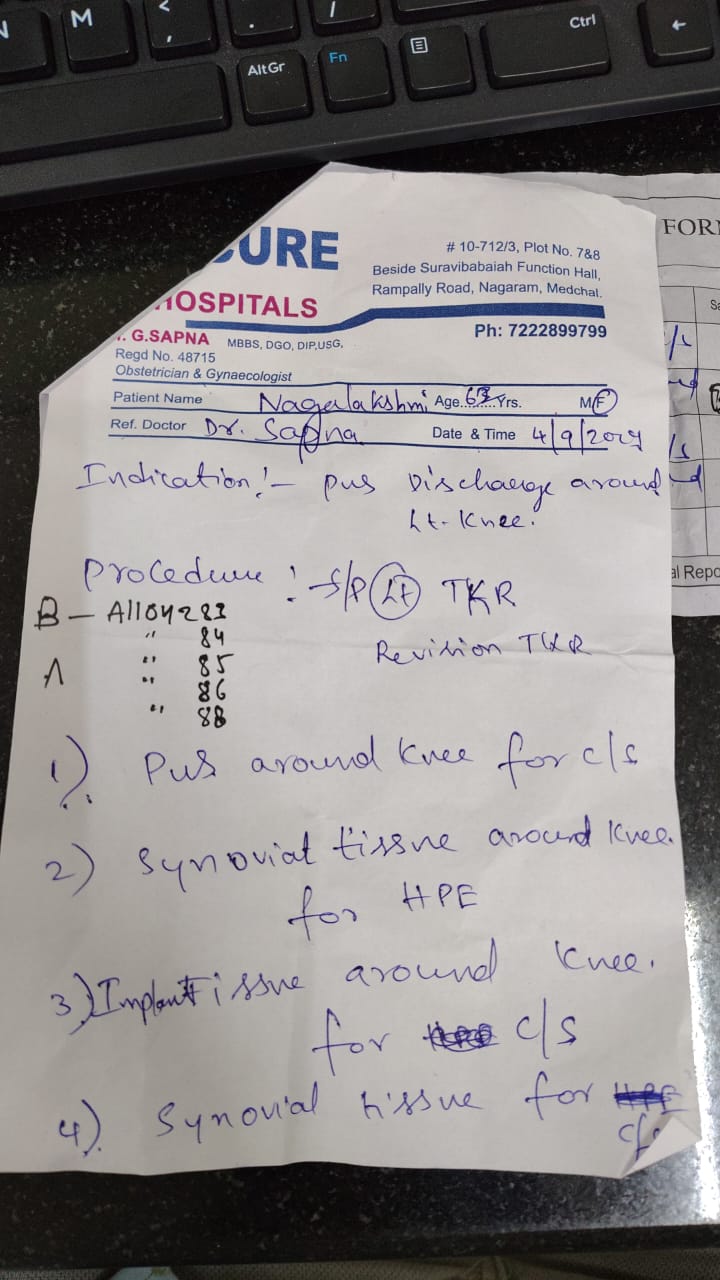 M
AltGr
Fn
Ctrl
URE
HOSPITALS
# 10-712/3, Plot No. 7&8
Beside Suravibabaiah Function Hall,
Rampally Road, Nagaram, Medchal.
Ph: 7222899799
G.SAPNA MBBS, DGO, DIP,USG,
Regd No. 48715
Obstetrician & Gynaecologist
Patient Name Nagalakshmi Age. 63 Yrs. M/F
Ref. Doctor Dr. Sapna Date & Time 4/9/
Indication :- Pus Discharge around
Lt. Knee.
Procedure : S/P Lt TKR
Revision TKR
B - 
" 84
A " 85
" 86
" 88
1). Pus around Knee for c/s
2) Synovial tissue around Knee.
for HPE
3) Implant tissue around Knee.
for c/s
4). Synovial tissue for HPE
c/s
FOR
al Repo